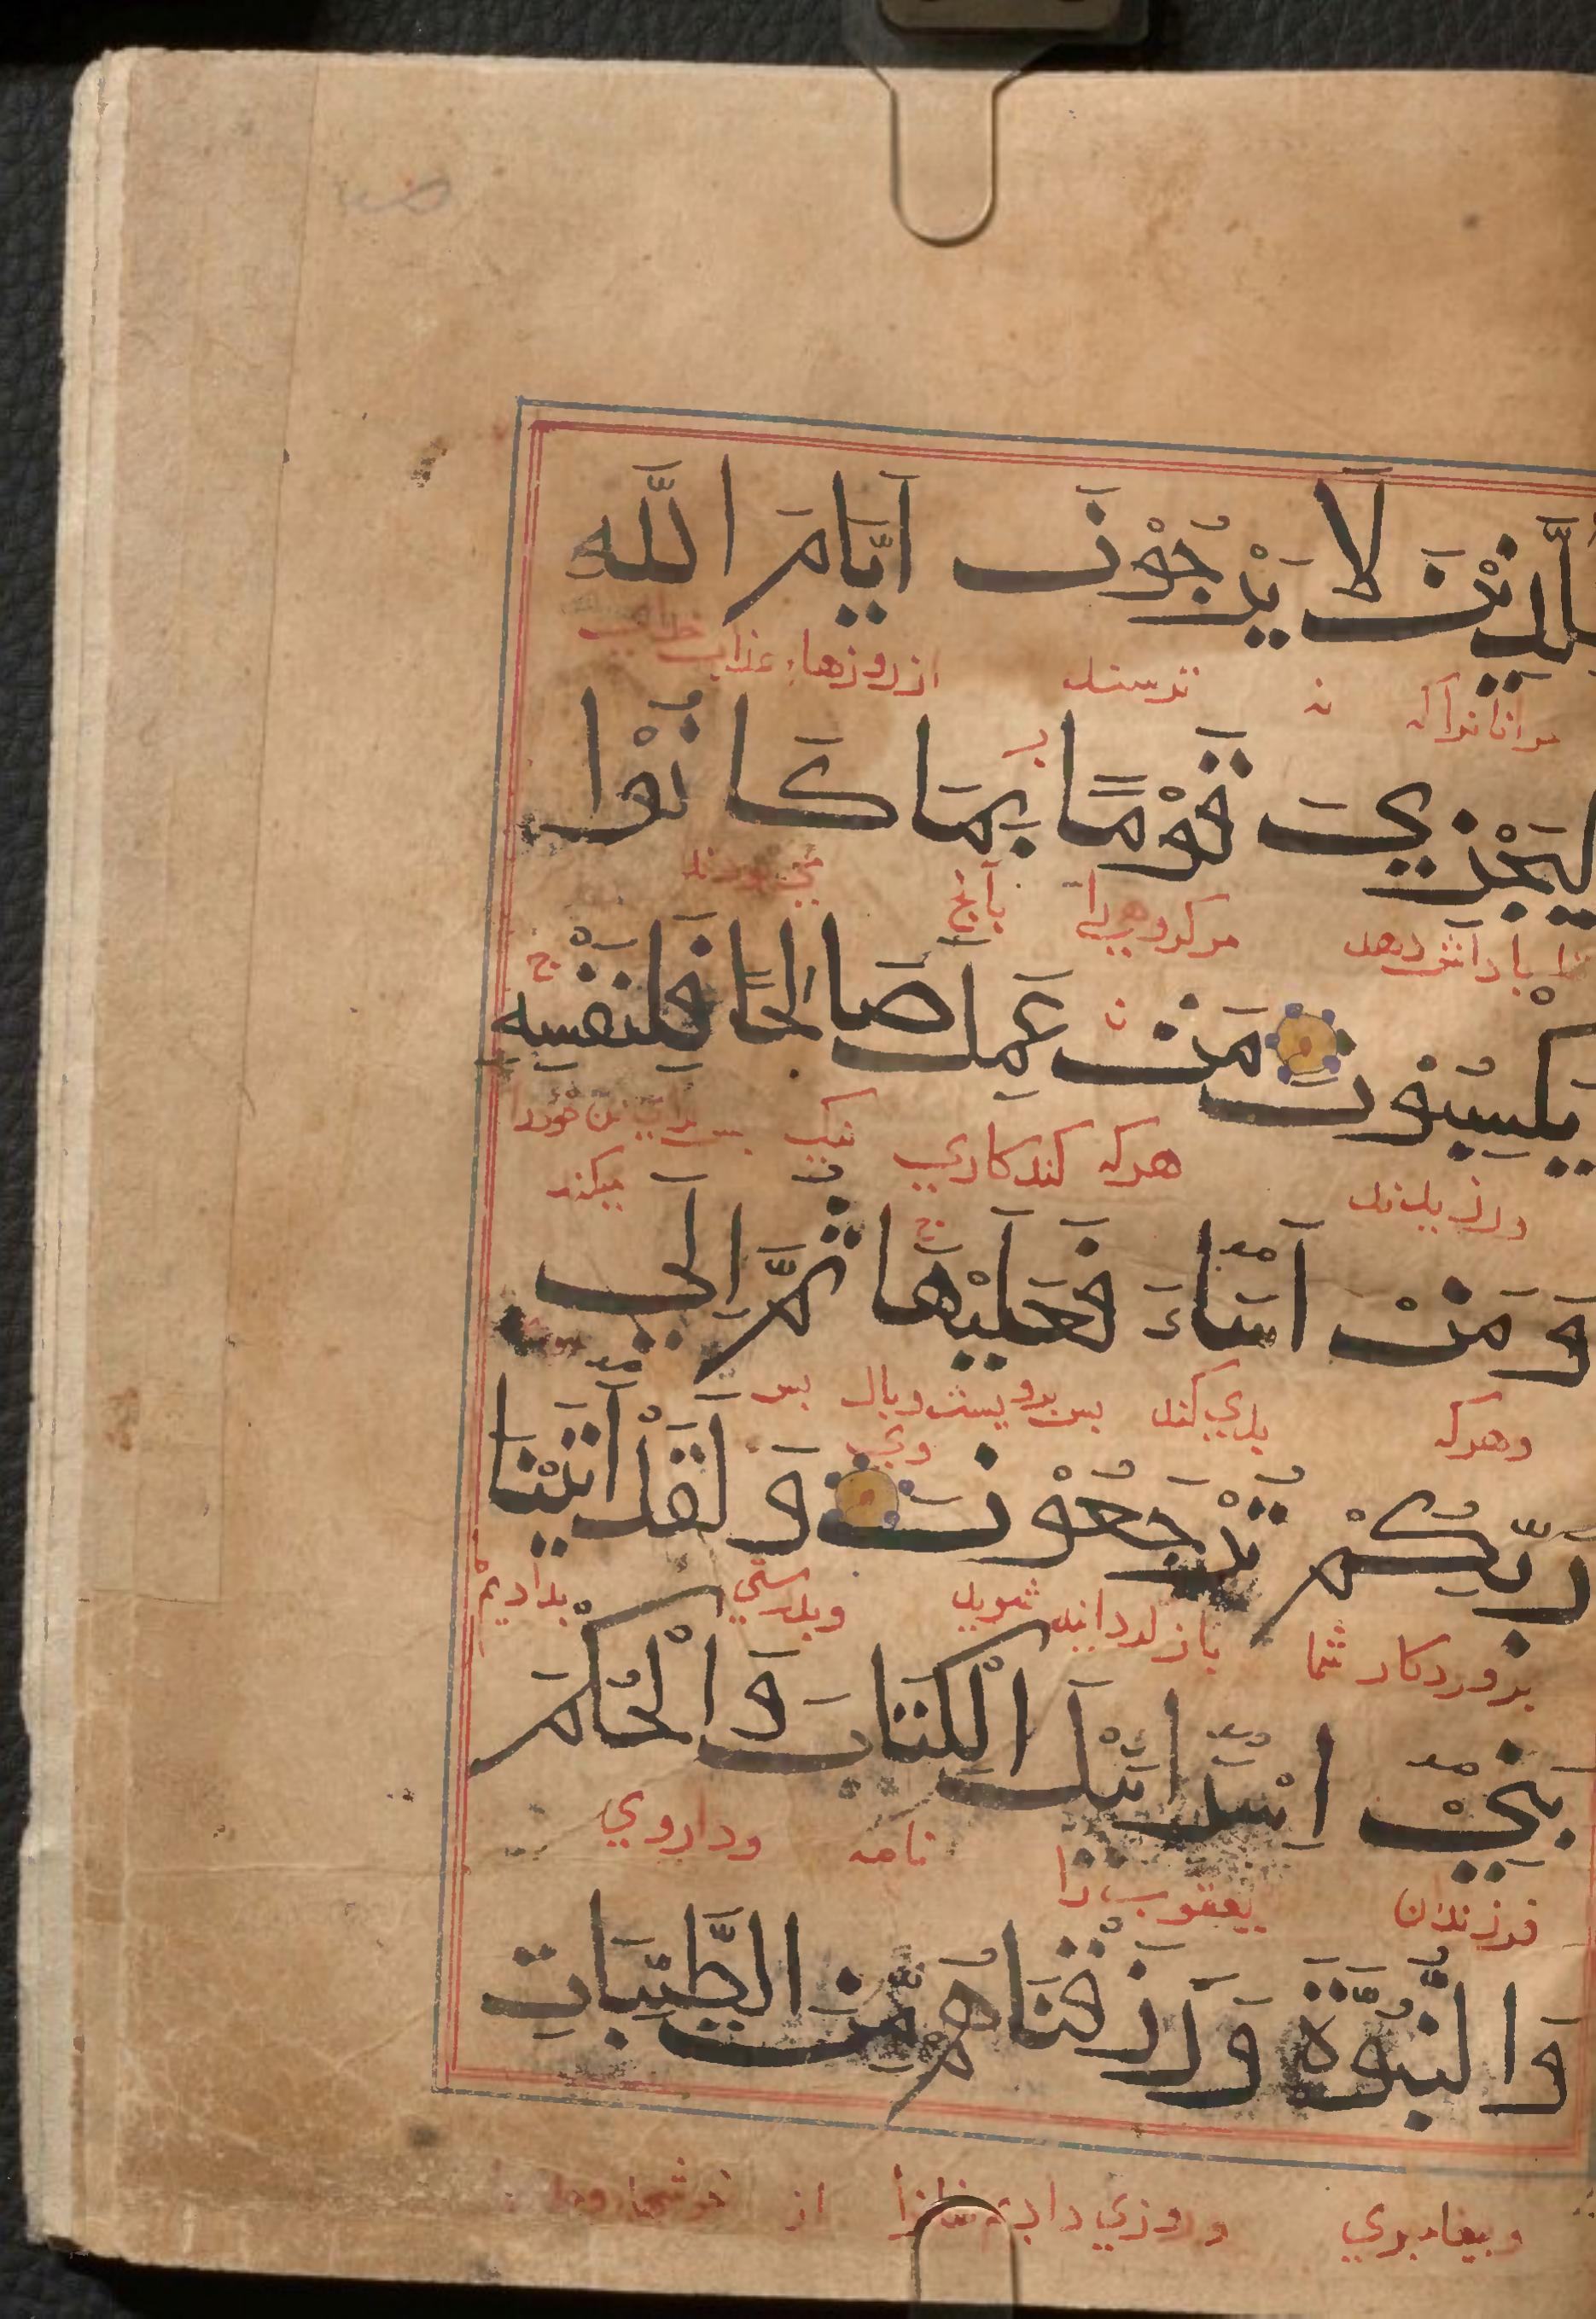 لِلَّذِيْنَ لَا يَرْجُوْنَ اَيَّامَ اللَّهِ
مرانانراکه نه ترسند از روزهاء عذاب خدای
لِيَجْزِيَ قَوْمًا بِمَا كَانُوْا
تا باداش دهد مر کروهی را بآنچ می بودند
يَكْسِبُوْنَ مَنْ عَمِلَ صَالِحًا فَلِنَفْسِهِ
هرکه کند کاری نیک بس برای تن خود را
میکند
وَمَنْ اَسَاءَ فَعَلَيْهَا ثُمَّ اِلَى
وهرکه بدی کند بس برویست وبال بس
وی
رَبِّكُمْ تُرْجَعُوْنَ وَلَقَدْ اٰتَيْنَا
بروردکار شما باز کردانیده شوید وبدرستی بدادیم
بَنِيْ اِسْرَائِيْلَ الْكِتَابَ وَالْحُكْمَ
فرزندان یعقوب را نامه وداروی
وَالنُّبُوَّةَ وَرَزَقْنَاهُمْ مِّنَ الطَّيِّبَاتِ
وبیغامبری وروزی دادیم از